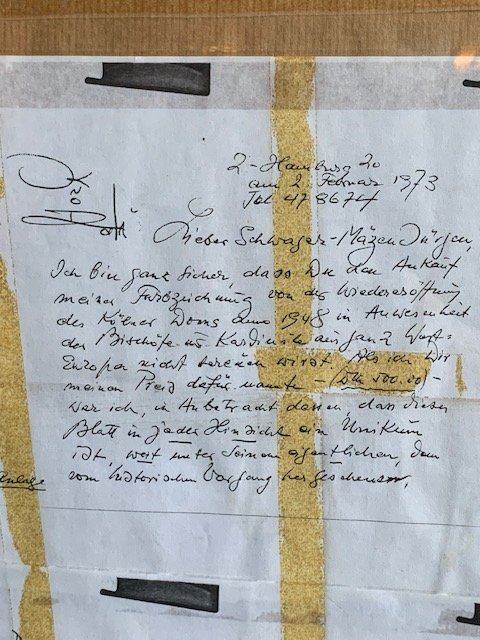 2-Hamburg 20
am 2. Februar 1973
Tel 478674
Lieber Schwager-Mäzen Jürgen,
Ich bin ganz sicher, dass Du den Ankauf
meiner Farbzeichnung von der Wiedereröffnung
des Kölner Doms anno 1948 in Anwesenheit
der Bischöfe u. Kardinäle aus ganz West-
Europa nicht bereuen wirst. Als ich Dir
meinen Preis dafür nannte - (DM 500.00) -
war ich, in Anbetracht dessen, dass dieses
Blatt in jeder Hinsicht ein Unikum
ist, weit unter seinem eigentlichen, dem
vom historischen Vorgang her gesehenen,
Anlage